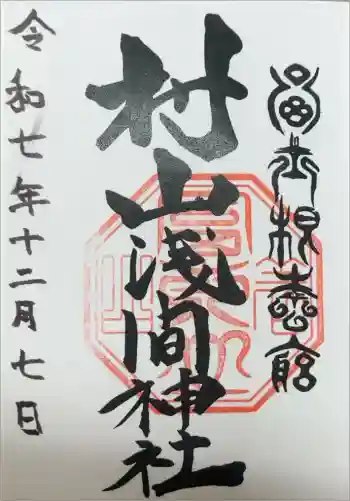 富士根本宮
村山浅間神社
令和七年十二月七日